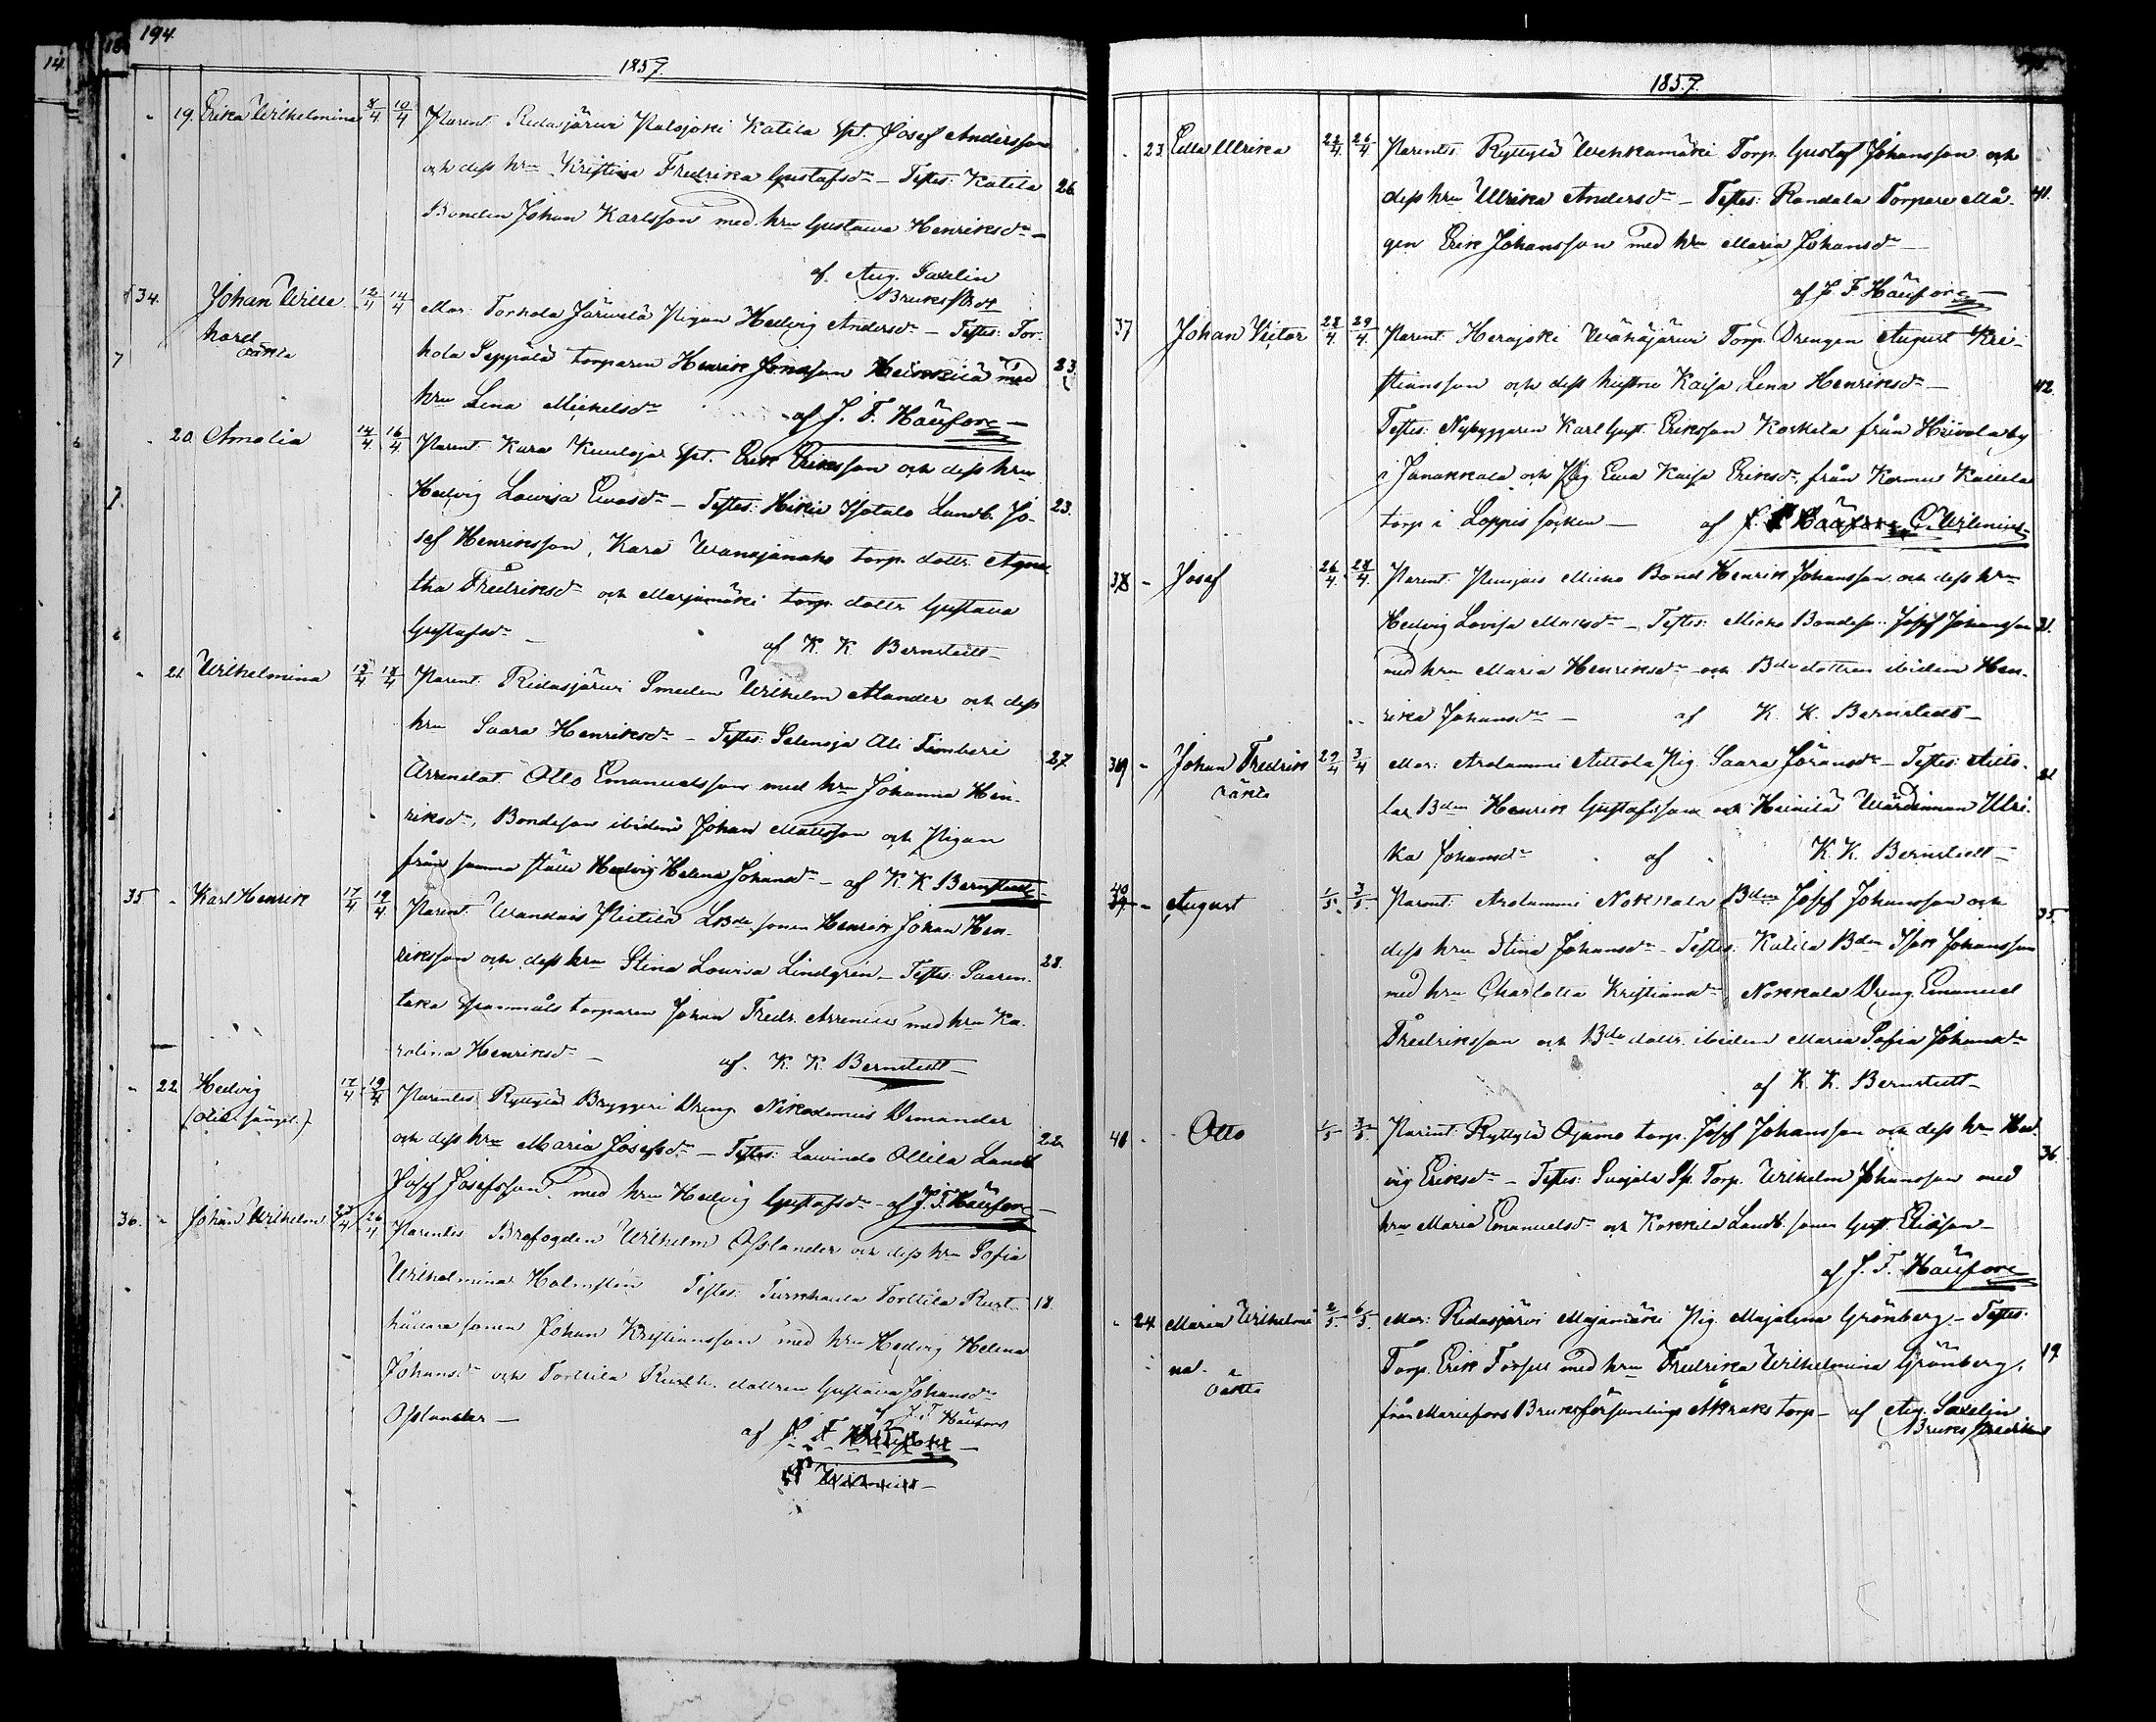 194.
1857.
19. Erika Wilhelmina 8/4 10/4 Parent: Ridasjärvi Palojoki Katila Spt. Josef Andersson
och dess hru Kristina Fredrika Gustafsdr – Testes: Katila 26.
Bonden Johan Karlsson med hru Gustava Henriksdr –
af Aug. Saxelin
Bruks
34. Johan Wille 12/4 14/4 Mor: Torhola Järvelä Pigan Hedvig Andersdr – Testes: Tor-
hard
oäkta
hola Seppälä torparen Henrik Heikkilä med 23.
hru Lena Michelsdr af J. F. Häufore
20. Amalia 14/4 16/4 Parent: Kara Kuuloja Spt. Erik Eriksson och dess hru
Hedvig Lovisa Evasdr – Testes: Hikiä Isotalo Landb. Jo- 23.
sef Henriksson, Kara torp. dottr. Agne-
tha Fredriksdr och Marjamäki torp. dottr Gustava
Gustafsdr – af K. K. Bernstedt
21. Wilhelmina 15/4 18/4 Parent: Ridasjärvi Smeden Wilhelm Alander och dess
hru Saara Henriksdr – Testes: Selenoja Ali Timberi 27.
Arrendat. Otto Emanuelsson med hru Johanna Hen-
riksdr, Bondeson ibidem Johan Mattsson och Pigan
från samma ställe Hedvig Helena Johansdr – af K. K. Bernstedt
35 Karl Henrik 17/4 19/4 Parent: Wandais Pietilä sonen Henrik Johan Hen-
riksson och dess hru Stina Lovisa Lindgrén – Testes: Saaren- 28.
taka torparen Johan Fredr. Arrenius med hru Ka-
rolina Henriksdr – af K. K. Bernstedt
22 Hedvig 17/4 19/4 Parentes: Ryttylä Bryggeri Dreng Nikodemus Demander
och dess hru Maria Josefsdr – Testes: Lavinto Ollila Landb 22.
Josef Josefsson med hru Hedvig Gustafsdr – af J. F. Häufore
36. Johan Wilhelm 23/4 26/4 Parentes Brofogden Wilhelm Osslander och dess hru Sofia
Wilhelmina Holmstén Testes: Turkhauta Torttila Rust- 18.
hållare sonen Johan Kristiansson med hru Hedvig Helena
Johansdr och Torttila Rusth. dottren Gustava Johansdr
Osslander – af J. F. Häufors
af J. F.
1857.
23. Edla Ulrika 22/4 26/4 Parentes: Ryttylä Wehkamäki Torp. Gustaf Johansson och
dess hru Ulrika Andersdr – Testes: Randala Torpare Må- 41.
gen Erik Johansson med hru Maria Johansdr –
af J. F. Häufore –
37 Johan Victor 28/4 29/4 Parent: Herajoki Wähäjärvi Torp. Drengen August Kri-
stiansson och dess hustru Kaisa Lena Henriksdr – 42.
Testes: Nybyggaren Karl Gust. Eriksson Koskela från by
i Janakkala och Pig. Eva Kaisa Eriksdr från Kormu
torp i Loppis socken – af
38 - Josef 26/4 28/4 Parent: Micko Bond Henrik Johansson och dess hru
Hedvig Lovisa Matsdr – Testes: Micko Bondeson Josef Johansson 21.
med hru Maria Henriksdr – och Bde dottren ibidem Hen-
rika Johansdr – af K. K. Bernstedt –
39 - Johan Fredrik 29/4 3/4 Mor: Arolammi Aittola Pig. Saara Jöransdr – Testes: Aitto- 21
oäkta
lax Bden Henrik Gustafsson och Heinilä Wärdinnan Ulri-
ka Johansdr af K. K. Bernstedt –
40
39 - August 1/5 3/5 Parent: Arolammi Nokkala Bden Josef Johansson och 35.
dess hru Stina Johansdr – Testes: Katila Bden Isak Johansson
med hru Charlotta Kristiansdr Nokkala Dreng Emanuel
Fredriksson och Bde dottr. ibidem Maria Sofia Johansdr
af K. K. Bernstedt –
41 Otto 1/5 3/5 Parent: Ryttylä Ojamo torp. Josef Johansson och dess hru Hed- 36.
vig Eriksdr – Testes: Torp. Wilhelm Johansson med
hru Maria Emanuelsdr och Kokkila Landb. sonen Gust. Eliasson –
af J. F. Häufore
24 Maria Wilhelmi- 2/5 6/5 Mor: Ridasjärvi Majamäki Pig. Majalena Grönberg – Testes:
na.
oäkta
Torp. Erik Forsell med hru Fredrika Wilhelmina Grönberg, 19.
från Mariefors Bruksförsamlings torp – af Aug. Saxelin
Brukspredikant